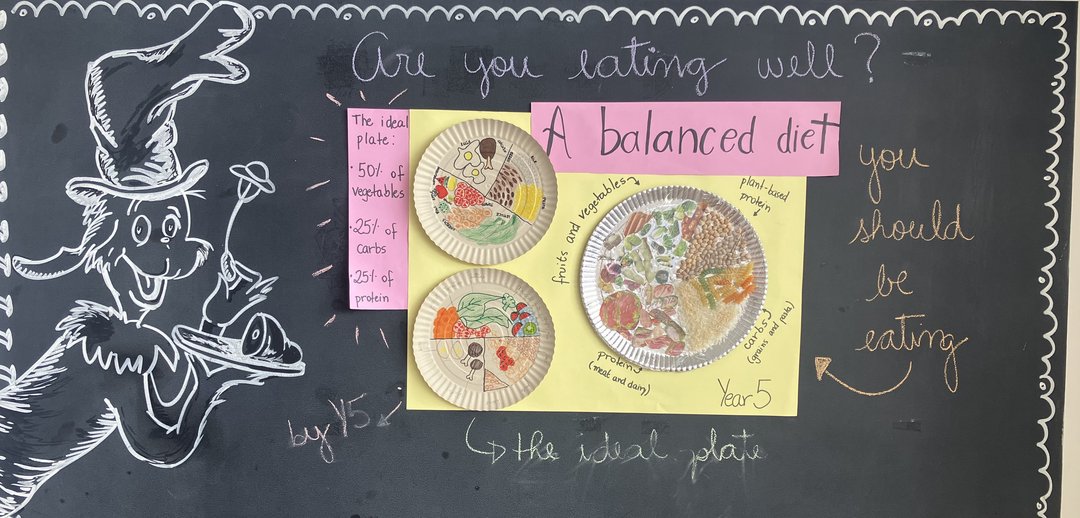 Are you eating well?
The ideal
plate:
· 50% of
vegetables
· 25% of
carbs
· 25% of
protein
A balanced diet
fruits and vegetables
plant-based
protein
carbs
(grains and pasta)
protein
(meat and dairy)
Year 5
you
should
be
eating
by Y5
the ideal plate